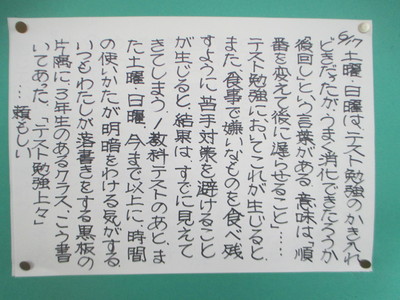 5/17土曜・日曜は、テスト勉強のかき入れ
どきだったが、うまく消化できただろうか
後回しという言葉がある。意味は、「順
番を変えて後に遅らせること」……
テスト勉強においてこれが生じると、
また、食事で嫌いなものを食べ残
すように、苦手対策を避けること
が生じると、結果は、すでに見えて
きてしまう/教科テストのあと、ま
た土曜・日曜。今まで以上に、時間
の使いかたが明暗をわける気がする。
いつもわたしが落書きをする黒板の
片隅に、3年生のあるクラス、こう書
いてあった、「テスト勉強上々」
…頼もしい